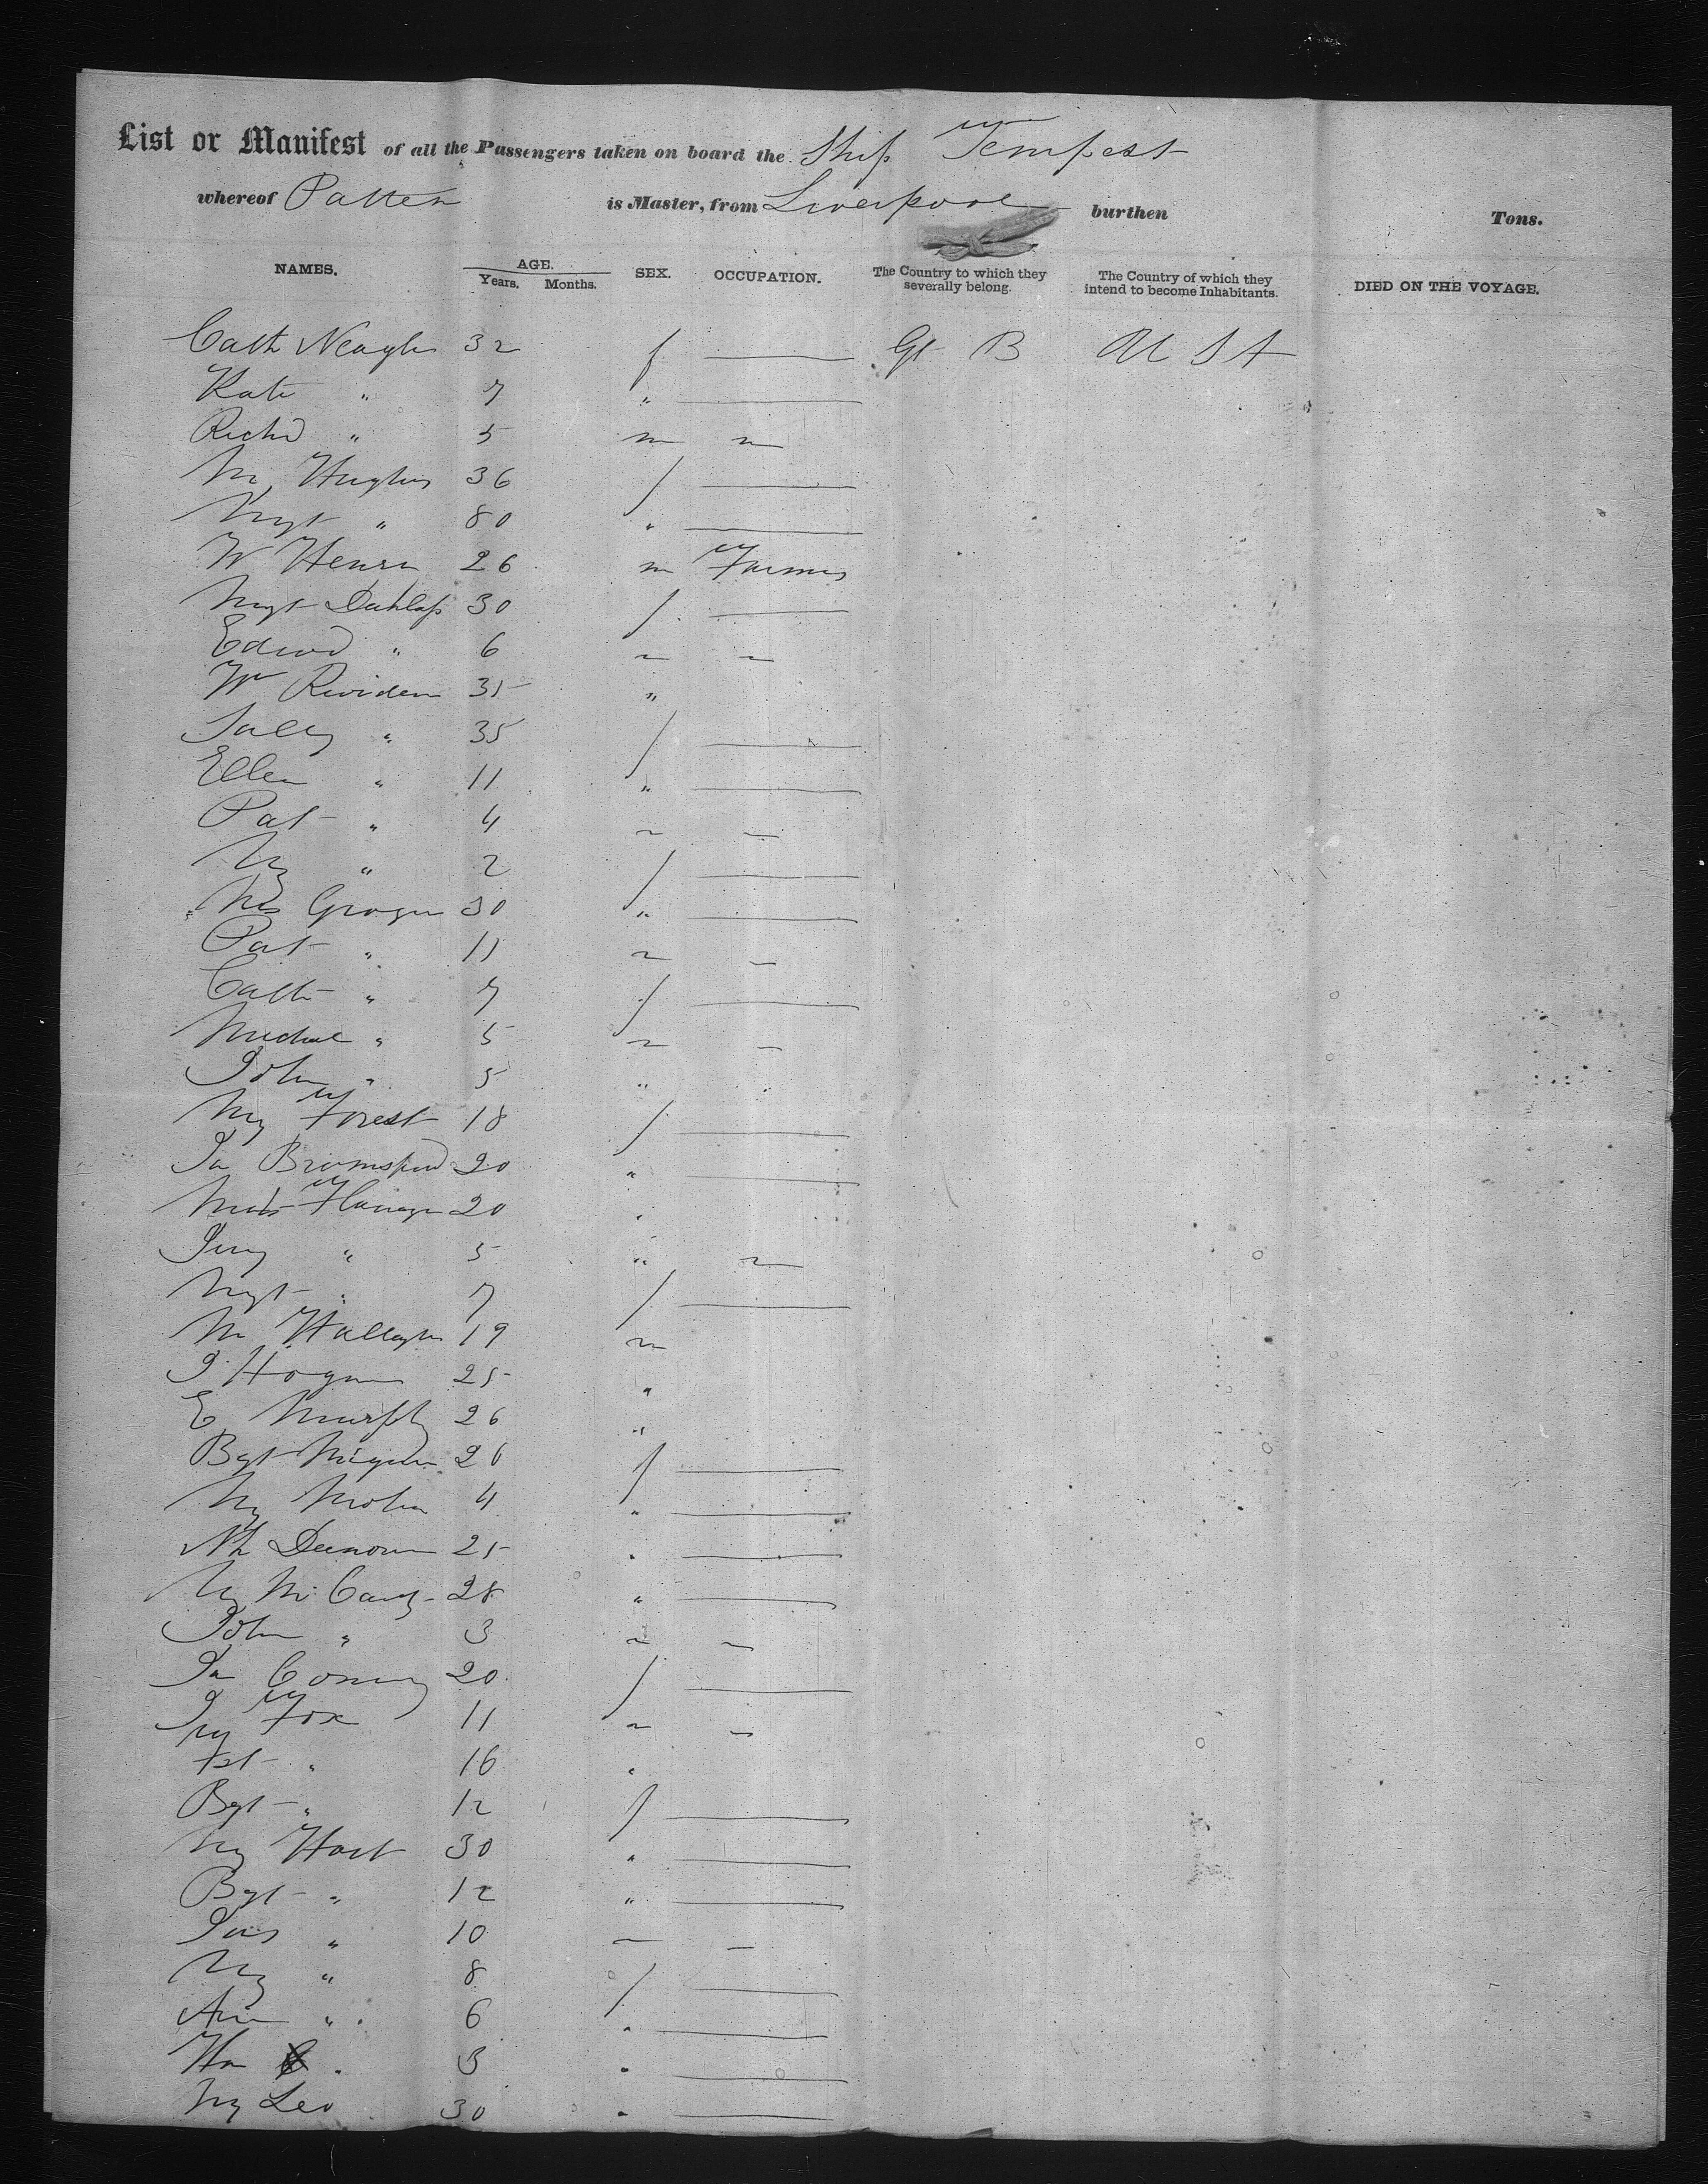 List or Manifest of all the Passengers taken on board the Ship Tempest
whereof Patten is Master, from Liverpool burthen Tons.
NAMES. AGE. Years. Months. SEX. OCCUPATION. The Country to which they severally belong. The Country of which they intend to become Inhabitants. DIED ON THE VOYAGE.
Cath Neagle 32 f — Gt B U S A
Kate " 7 " —
Richd " 5 m ~
M Hughes 36 f —
Mgt " 80 " —
W Henry 26 m Farmer
Mgt 30 f —
Edwd " 6 ~ ~
Wm 35 "
Sally " 35 f —
Ellen " 11 " —
Pat " 4 ~ —
My " 2 f —
Mrs Grogan 30 " —
Pat " 11 ~ —
Cath " 7 f —
Michael " 5 ~ —
John " 5 "
My Forest 18 f —
20 " —
Flanagan 20 "
" 5 " ~
Mgt " 7 f —
M 19 m
J Hogan 25 "
E Murphy 26 "
Bgt 26 f —
My 4 " —
25 " —
My McCarty 28 " —
John " 3 ~ ~
20 f —
J Fox 11 ~ ~
" 16 "
Bgt " 12 f —
My Hart 30 " —
Bgt " 12 " —
Jas " 10 — —
My " 8 f —
Ann " 6 " —
" 3 " —
My Leo 30 " —